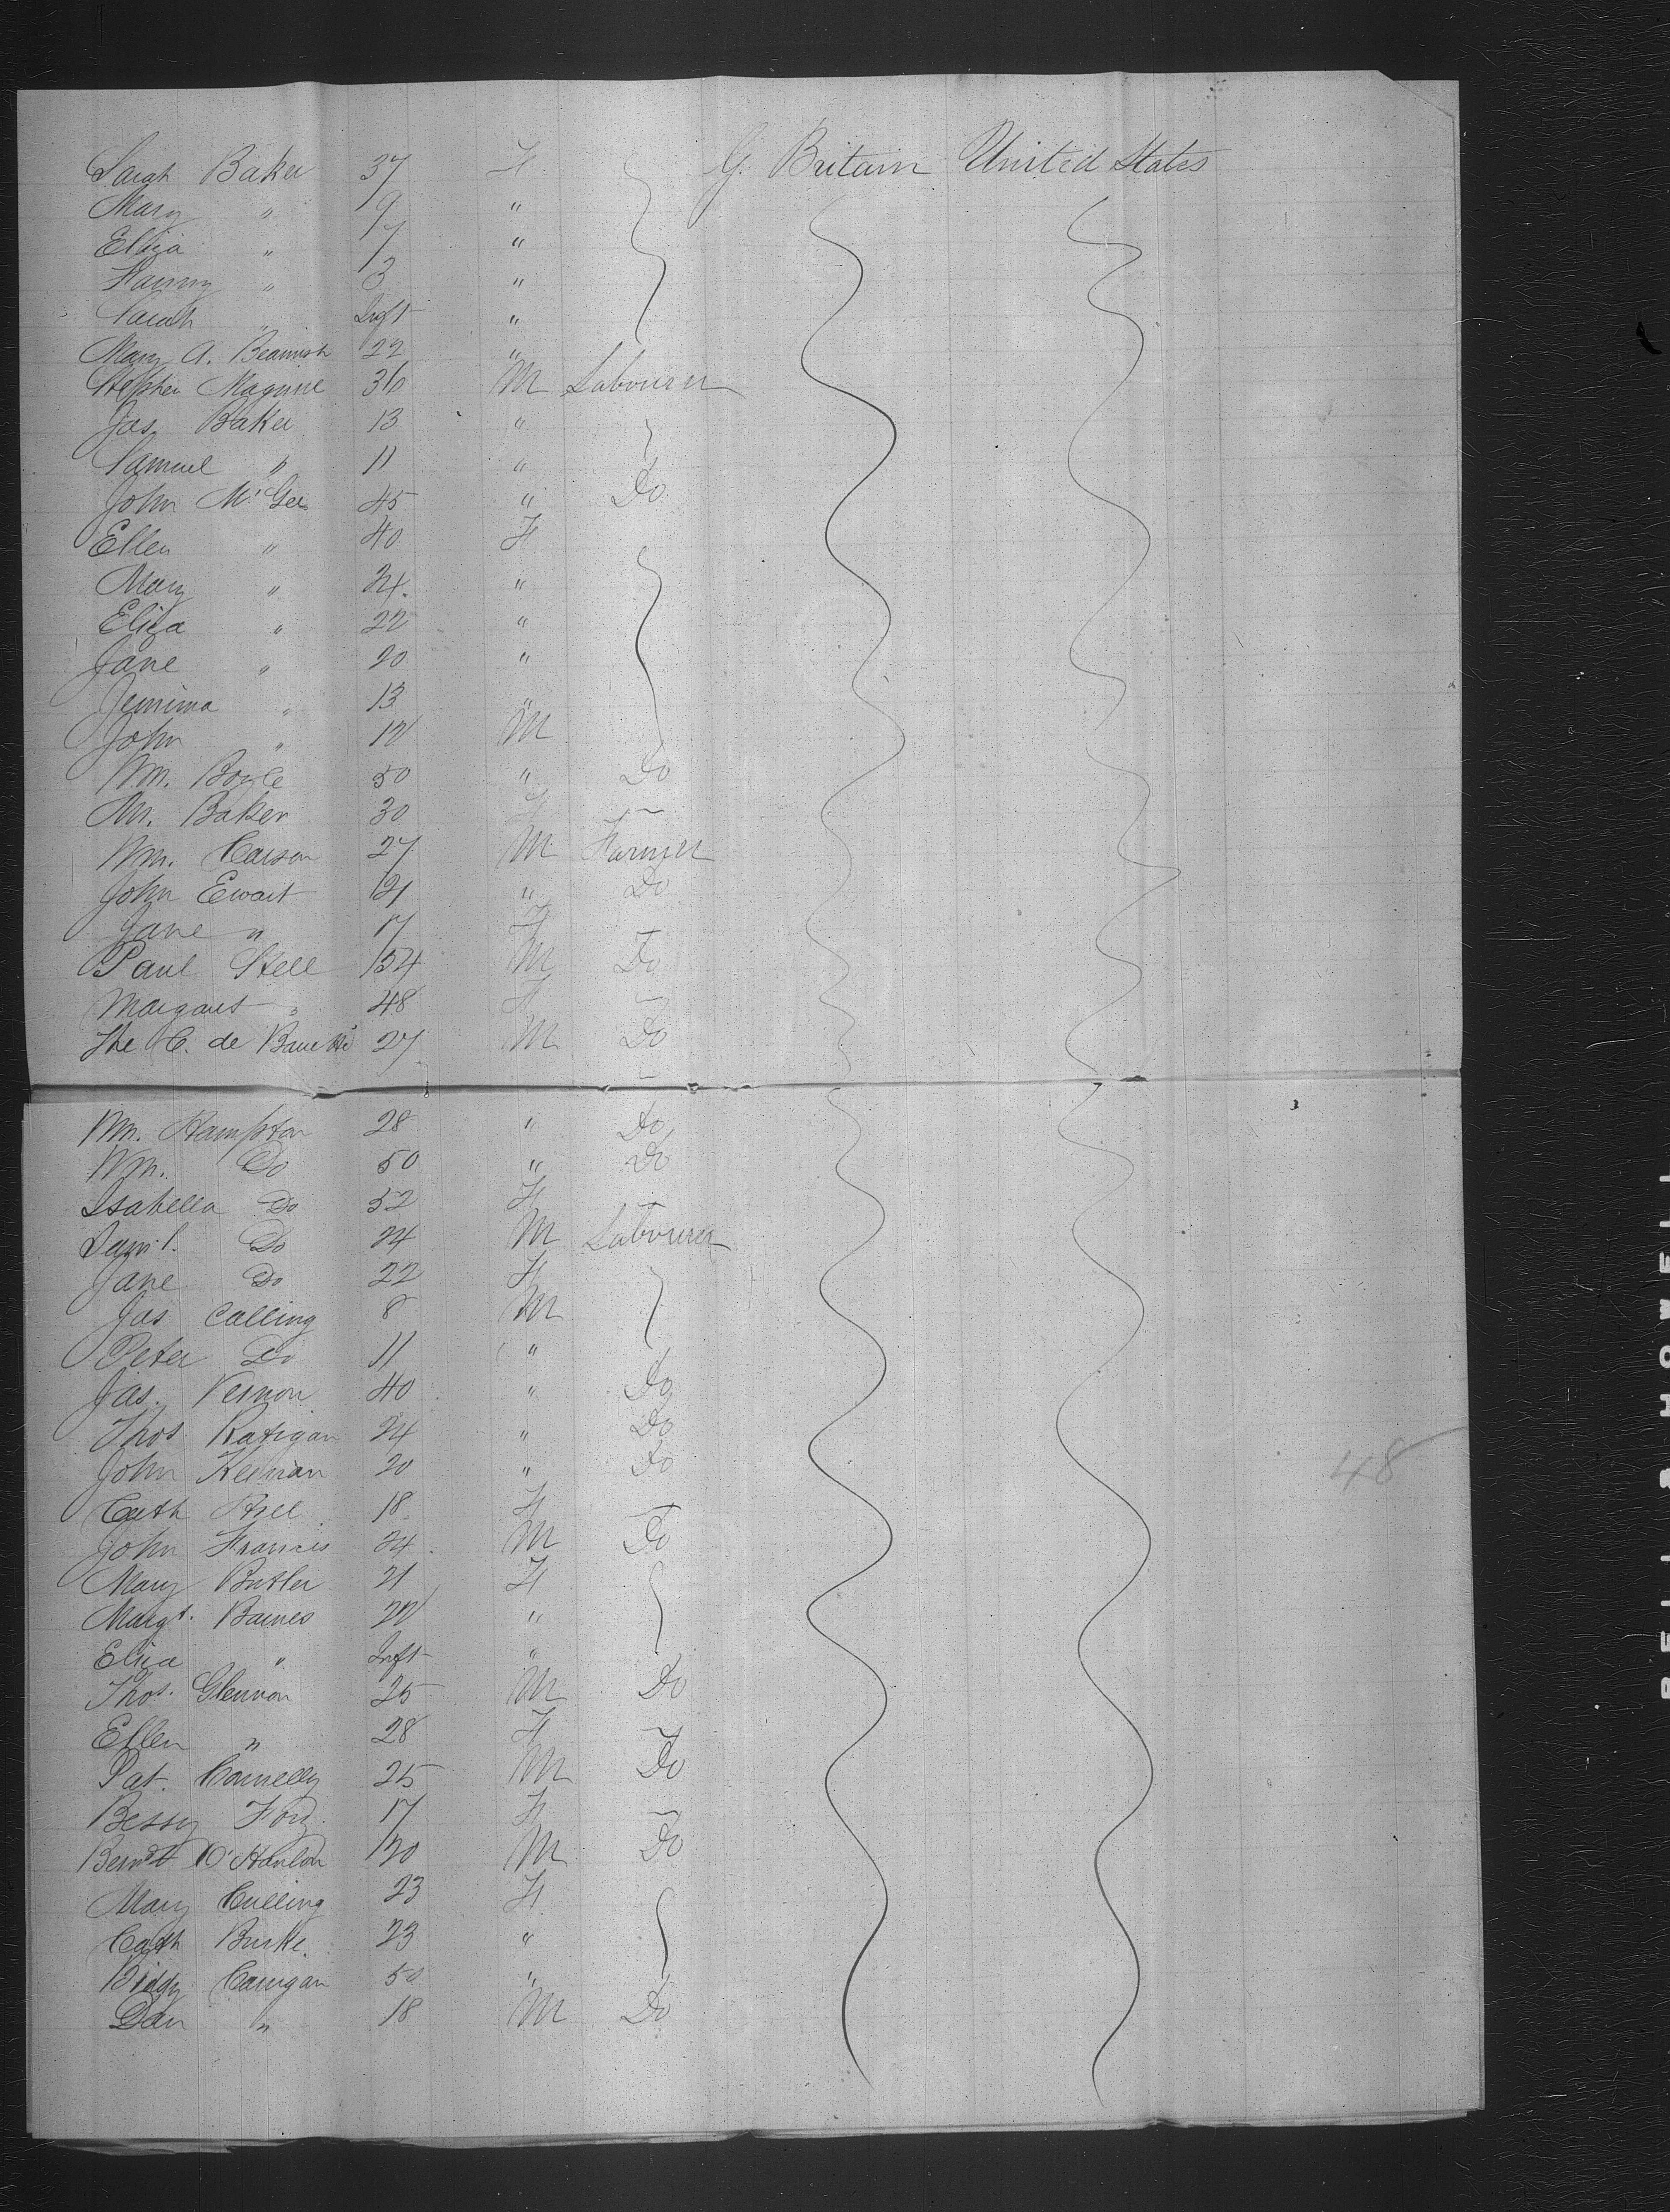 Sarah Baker 37 F G. Britain United States
Mary " 9 "
Eliza " 7 "
Fanny " 3 "
Sarah " Inft "
Mary A. Beamish 22 "
Stephen Maguire 36 M Labourer
Jas. Baker 13 "
Samuel " 11 "
John McGee 45 " Do
Ellen " 40 F
Mary " 24 "
Eliza " 22 "
Jane " 20 "
Jemima " 13 "
John " 12 M
Wm. Boyle 50 " Do
Baker 30 F —
Wm. Carson 27 M Farmer
John Ewart 21 " Do
Jane " 17 F —
Paul Stell 54 M Do
Margaret " 48 F —
The C. de 27 M Do
Wm. Hampton 28 " Do
Wm. Do 50 " Do
Isabella Do 52 F —
Saml. Do 24 M Labourer
Jane Do 22 F
Jas Calling 8 M
Peter Do 11 "
Jas. Vernon 40 " Do
Thos Ratigan 24 " Do
John 20 " Do
48
Cath 18 F —
John Francis 24 M Do
Mary Butler 21 F
Margt. Barnes 22 "
Eliza " Inft "
Thos. Glennon 25 M Do
Ellen " 28 F —
Pat. Connelly 25 M Do
Bessy Foy 17 F —
Bernd O'Hanlon 20 M Do
Mary Culling 23 F
Cath Burke 23 "
Biddy Carrigan 50 "
Dan " 18 M Do
BELL & HOWELL